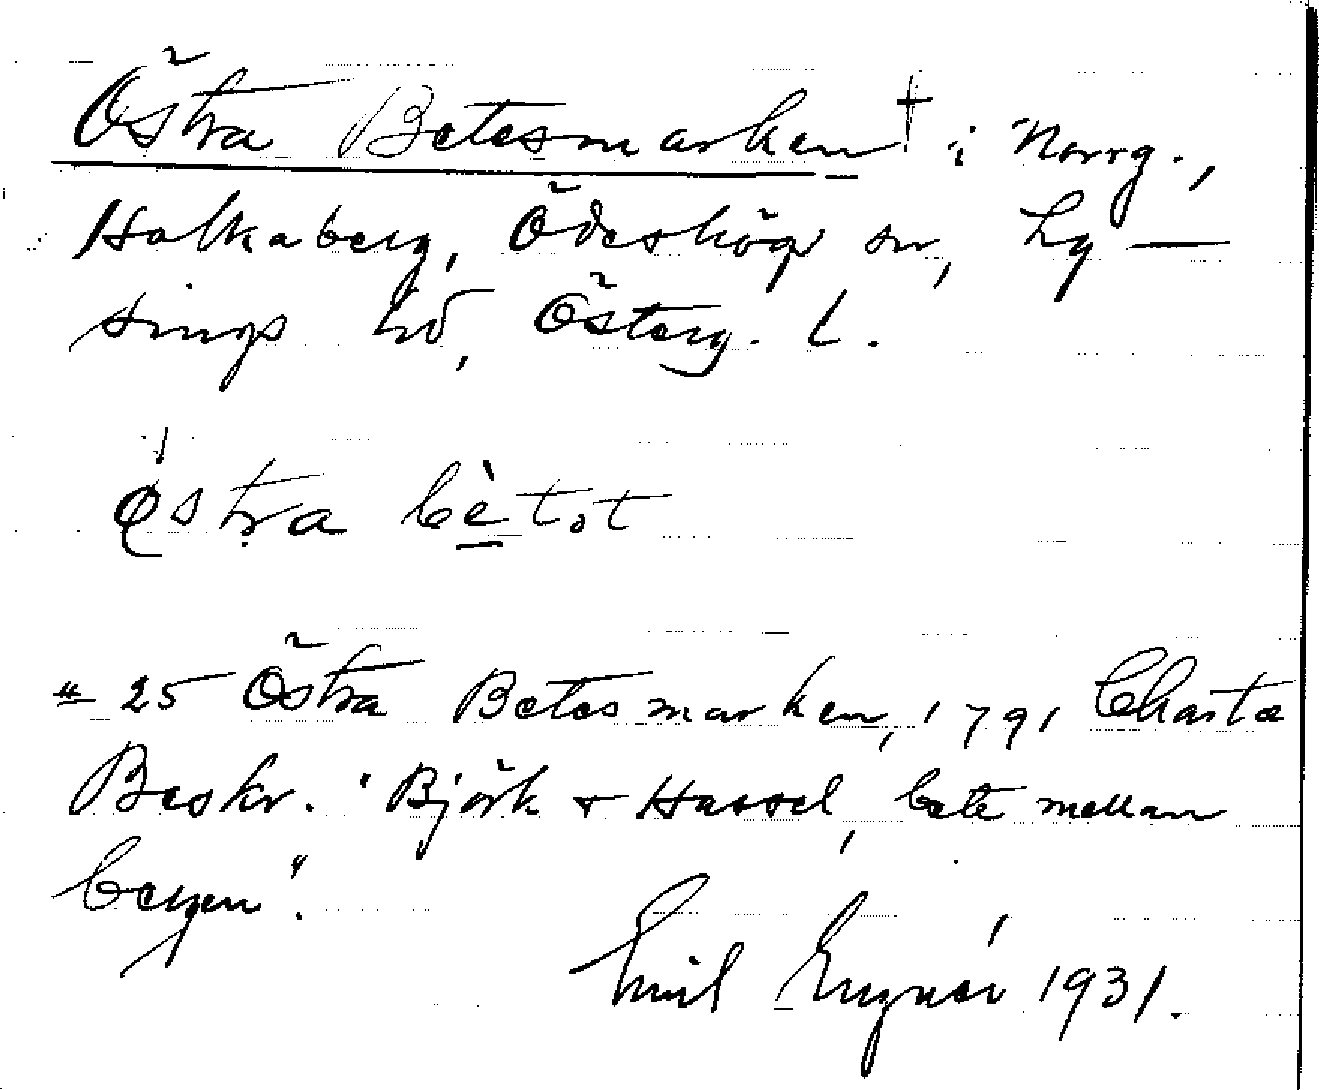 Östra Betesmarken † i Norrg.,
Holkaberg, Ödeshög sn, Ly-
sings hd, Österg. l.
östra bètot
№ 25 Östra Betesmarken, 1791 Charta
Beskr. "Björk & Hassel, bete mellan
bergen".
Emil 1931.